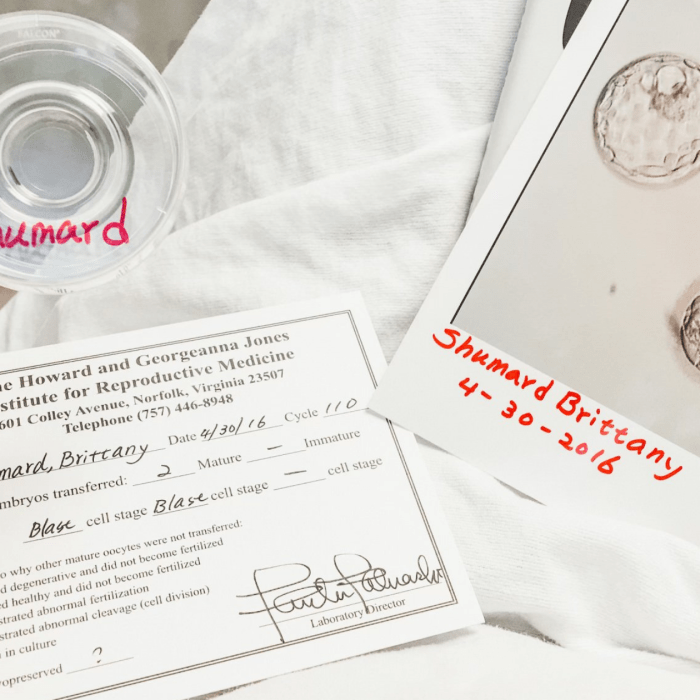 FALCON
umard
Shumard Brittany
4-30-2016
e Howard and Georgeanna Jones
stitute for Reproductive Medicine
601 Colley Avenue, Norfolk, Virginia 23507
Telephone (757) 446-8948
mard, Brittany Date 4/30/16 Cycle 110
mbryos transferred: 2 Mature — Immature
Blast cell stage Blast cell stage — cell stage
o why other mature oocytes were not transferred:
d degenerative and did not become fertilized
ed healthy and did not become fertilized
strated abnormal fertilization
strated abnormal cleavage (cell division)
in culture
opreserved ?
Laboratory Director